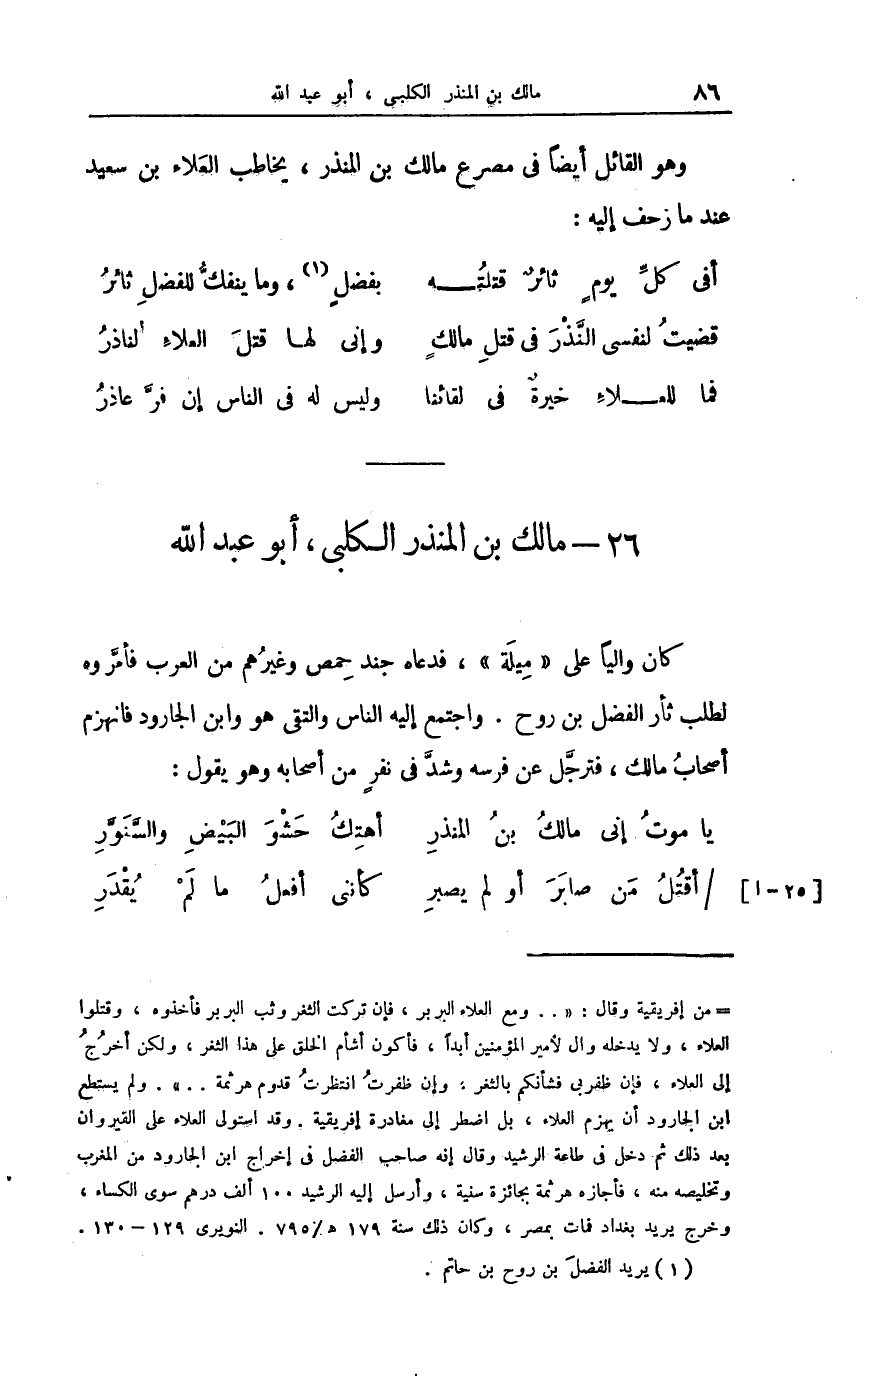 ٨٦ مالك بن المنذر الكلبى ، أبو عبد الله
وهو القائل أيضاً فى مصرع مالك بن المنذر ، يخاطب العَلاء بن سعيد
عند ما زحف إليه :
أفى كلِّ يومٍ ثائرٌ قتلتُـــه بفضلٍ (١) ، وما ينفكُّ للفضلِ ثائرُ
قضيتُ لنفسى النَّذْرَ فى قتلِ مالكٍ وإنى لهـا قتلَ العلاءِ لناذرُ
فما للعـــلاءِ خيرةٌ فى لقائنا وليس له فى الناس إن فرَّ عاذرُ
٢٦ – مالك بن المنذر الـكلبى ، أبو عبد الله
كان والياً على « مِيلَة » ، فدعاه جند حِمص وغيرُهم من العرب فأمَّروه
لطلب ثأر الفضل بن روح . واجتمع إليه الناس والتقى هو وابن الجارود فانهزم
أصحابُ مالك ، فترجَّل عن فرسه وشدَّ فى نفرٍ من أصحابه وهو يقول :
يا موتُ إنى مالكُ بنُ المنذرِ أهتِكُ حَشْوَ البَيْضِ والسَّنَوَّرِ
[٢٥-ا] / أقتُلُ مَن صابَرَ أو لم يصبرِ كأننى أفعلُ ما لَمْ يُقْدَرِ
= من إفريقية وقال : « . . ومع العلاء البربر ، فإن تركت الثغر وثب البربر فأخذوه ، وقتلوا
العلاء ، ولا يدخله وال لأمير المؤمنين أبداً ، فأكون أشأم الخلق على هذا الثغر ، ولكن أخرُجُ
إلى العلاء ، فإن ظفر بى فشأنكم بالثغر ؛ وإن ظفرتُ انتظرتُ قدوم هرثمة . . » . ولم يستطع
ابن الجارود أن يهزم العلاء ، بل اضطر إلى مغادرة إفريقية . وقد استولى العلاء على القيروان
بعد ذلك ثم دخل فى طاعة الرشيد وقال إنه صاحب الفضل فى إخراج ابن الجارود من المغرب
وتخليصه منه ، فأجازه هرثمة بجائزة سنية ، وأرسل إليه الرشيد ١٠٠ ألف درهم سوى الكساء ،
وخرج يريد بغداد فمات بمصر ، وكان ذلك سنة ١٧٩ ﻫ/٧٩٥ . النويرى ١٢٩ – ١٣٠ .
(١) يريد الفضلَ بن روح بن حاتم .